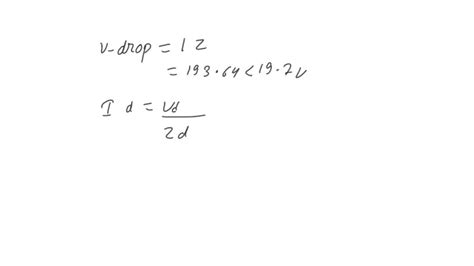 v-drop = I Z
= 193.64 < 19.2 v
I d = Vd
Zd